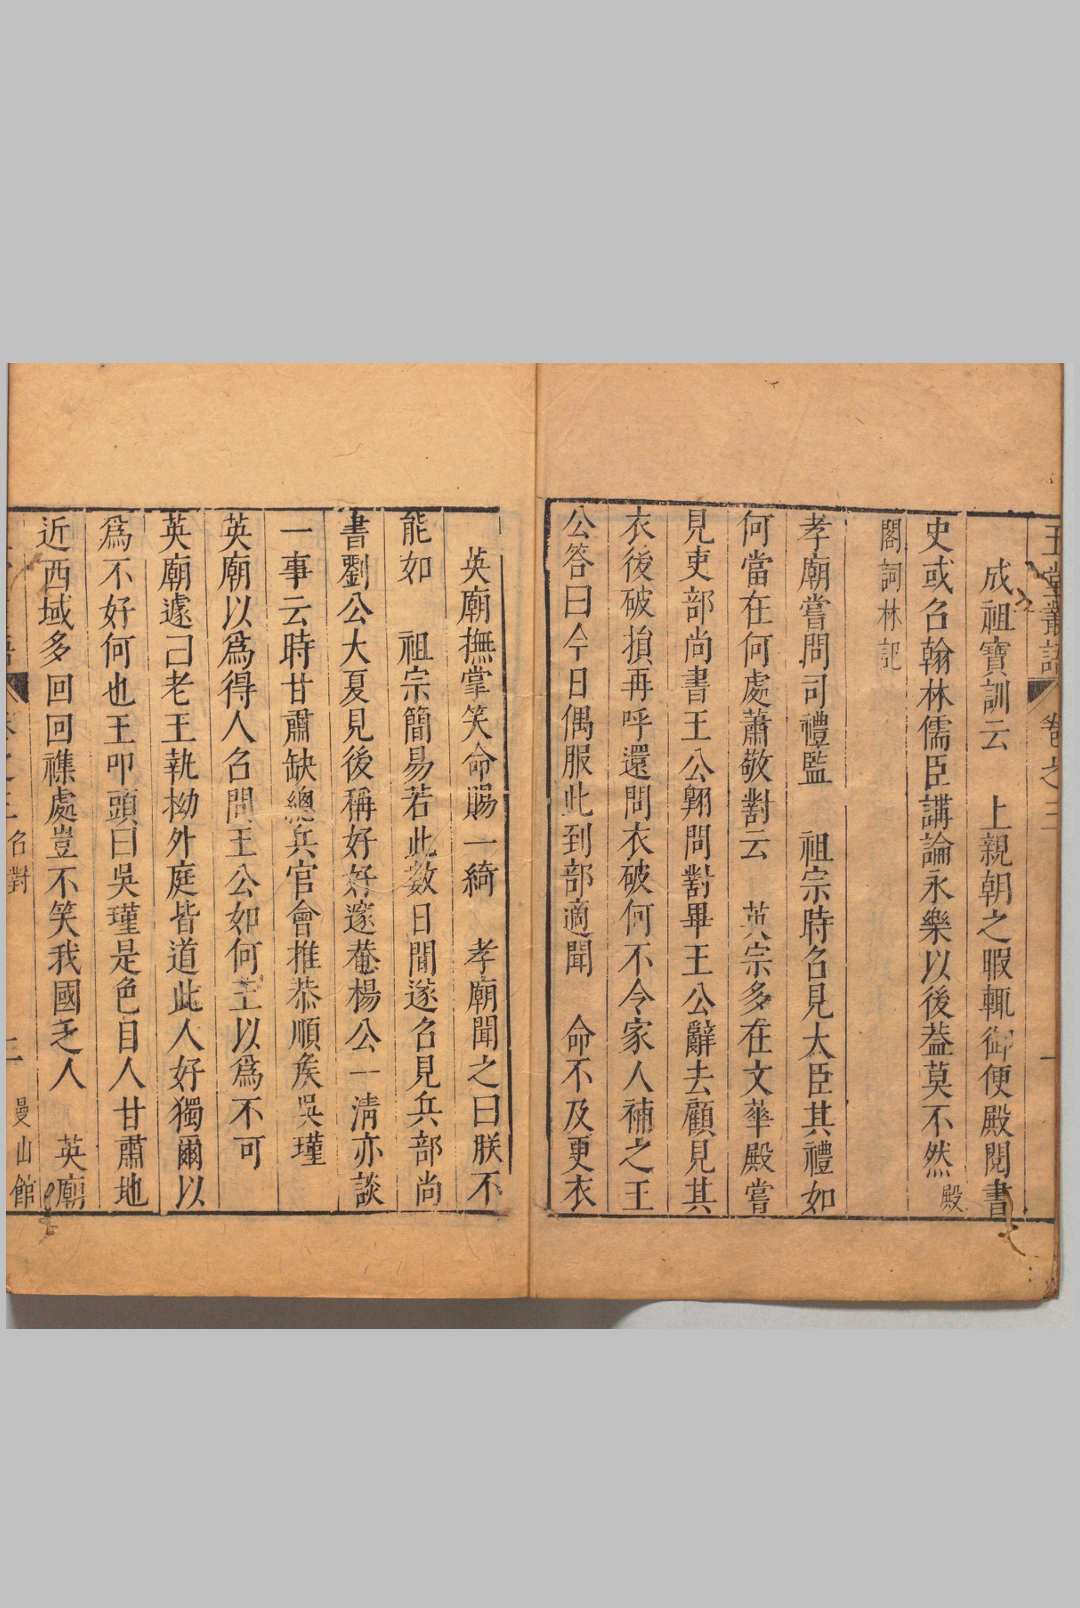 玉堂叢語 卷之三 一
成祖寶訓云 上親朝之暇輒御便殿閱書
史或召翰林儒臣講論永樂以後葢莫不然殿
閣詞林記
孝廟嘗問司禮監 祖宗時召見大臣其禮如
何當在何處蕭敬對云 英宗多在文華殿嘗
見吏部尚書王公翶問對畢王公辭去顧見其
衣後破損再呼還問衣破何不令家人補之王
公答曰今日偶服此到部適聞 命不及更衣
英廟撫掌笑命賜一綺 孝廟聞之曰朕不
能如 祖宗簡易若此數日間遂召見兵部尚
書劉公大夏見後稱好好邃菴楊公一清亦談
一事云時甘肅缺總兵官會推恭順矦吳瑾
英廟以爲得人召問王公如何王以爲不可
英廟遽曰老王執拗外庭皆道此人好獨爾以
爲不好何也王叩頭曰吳瑾是色目人甘肅地
近西域多回回襍處豈不笑我國乏人 英廟
卷之三 召對 二 曼山館